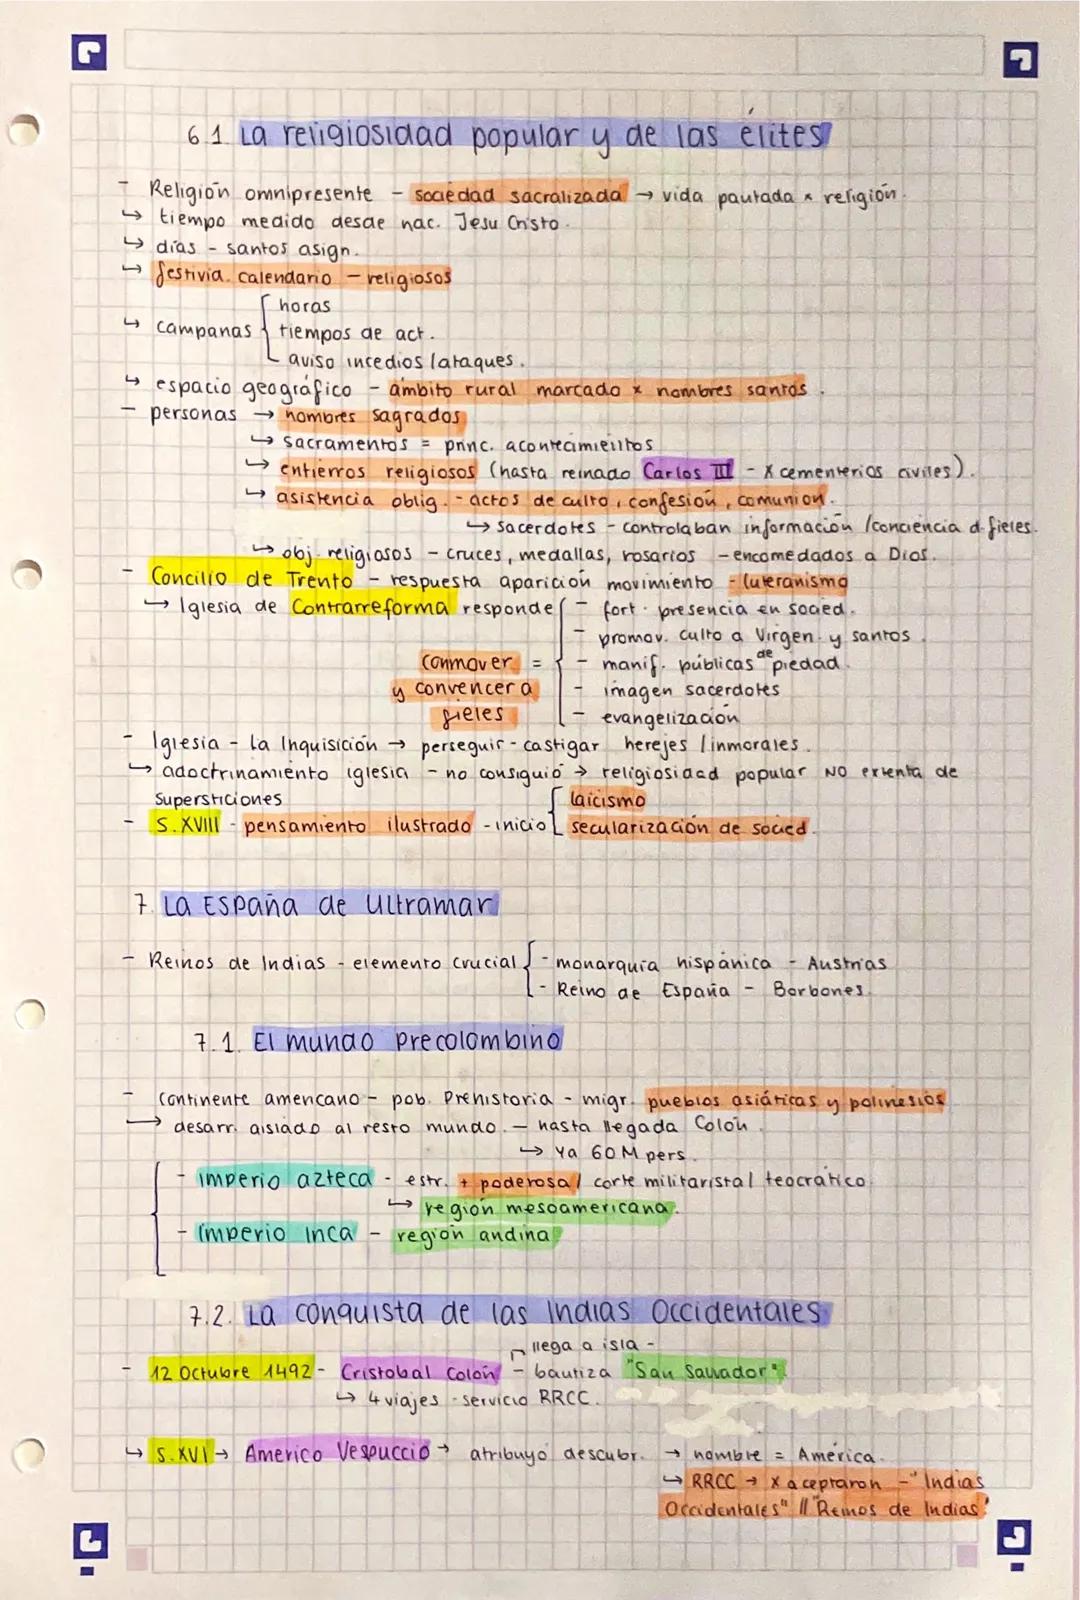 6.1. La religiosidad popular y de las élites
- Religión omnipresente - sociedad sacralizada → vida pautada x religión.
↳ tiempo medido desde nac. Jesu Cristo.
↳ días - santos asign.
↳ festivid. calendario - religiosos
horas
↳ campanas { tiempos de act.
aviso incedios / ataques.
↳ espacio geográfico - ámbito rural marcado x nombres santos.
- personas → nombres sagrados
↳ sacramentos = princ. acontecimientos
↳ entierros religiosos (hasta reinado Carlos III - x cementerios civiles).
↳ asistencia oblig. - actos de culto, confesión, comunion.
↳ sacerdotes - controlaban información / conciencia d. fieles.
↳ obj. religiosos - cruces, medallas, rosarios - encomedados a Dios.
- Concilio de Trento - respuesta aparición movimiento - luteranismo
↳ Iglesia de Contrarreforma responde { - fort. presencia en socied.
- promov. culto a Virgen. y santos.
conmover = { - manif. públicas de piedad.
y convencer a - imagen sacerdotes
fieles - evangelización
- Iglesia - La Inquisición → perseguir - castigar herejes / inmorales.
↳ adoctrinamiento iglesia - no consiguió → religiosidad popular NO extenta de
supersticiones { laicismo
- S.XVIII - pensamiento ilustrado - inicio secularización de socied.
7. La España de Ultramar
- Reinos de Indias - elemento crucial { - monarquía hispánica - Austrias
- Reino de España - Borbones.
7.1. El mundo precolombino
- Continente americano - pob. Prehistoria - migr. pueblos asiáticas y polinesios
→ desarr. aislado al resto mundo. - hasta llegada Colón.
↳ ya 60 M pers.
- imperio azteca - estr. + poderosa / corte militarista / teocrático.
↳ región mesoamericana.
- Imperio Inca - región andina
7.2. La conquista de las Indias Occidentales
llega a isla -
- 12 Octubre 1492 - Cristobal Colón - bautiza "San Salvador".
↳ 4 viajes - servicio RRCC.
↳ S.XVI → Americo Vespuccio → atribuyó descubr. → nombre = América.
↳ RRCC → x aceptaron - "Indias
Occidentales" // "Reinos de Indias"